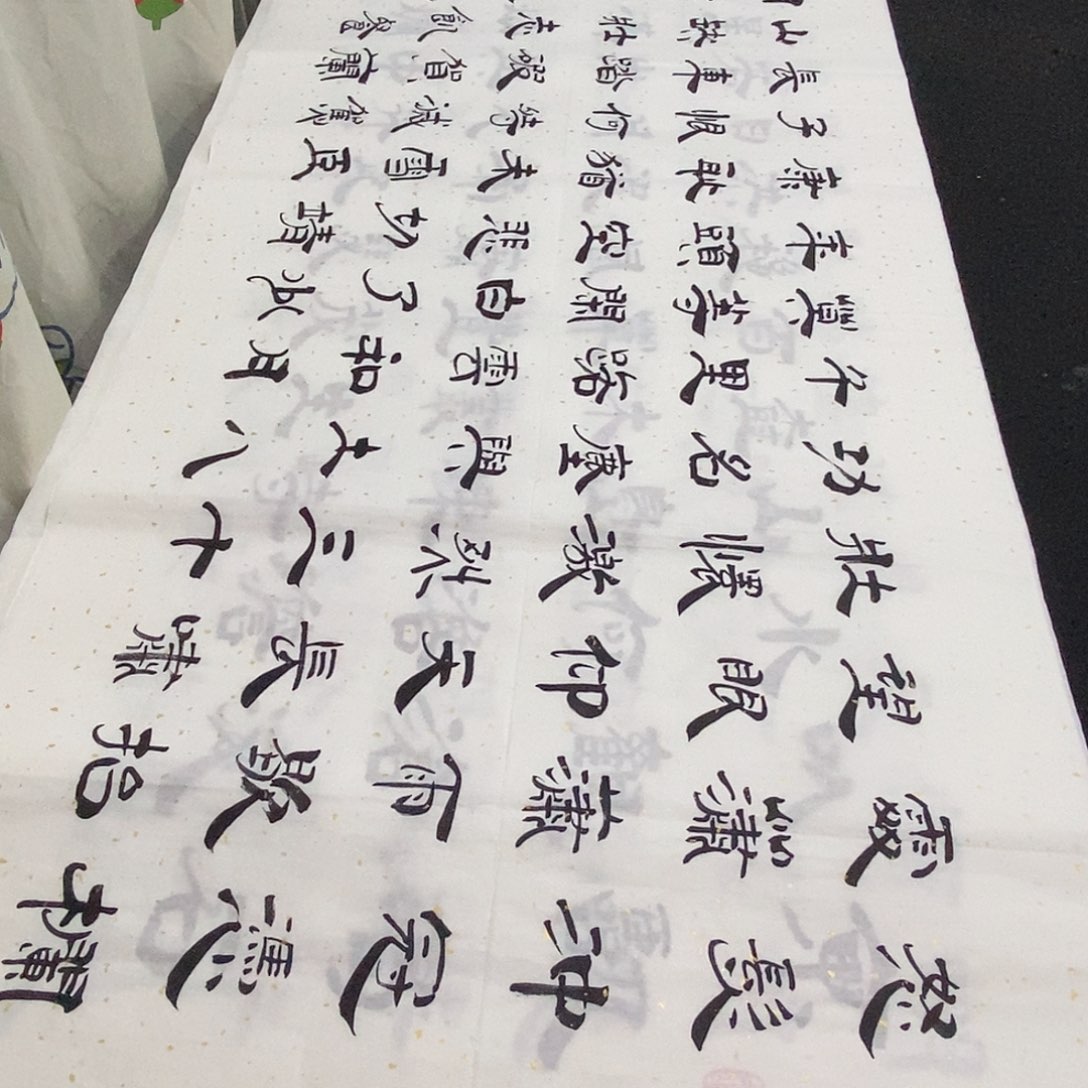 怒髮冲冠憑欄
處瀟瀟雨歇抬
望眼仰天長嘯
壯懷激烈三十
功名塵與土八
千里路雲和月
莫等閑白了少
年頭空悲切靖
康恥猶未雪臣
子恨何時滅駕
長車踏破賀蘭
山缺壯志飢餐